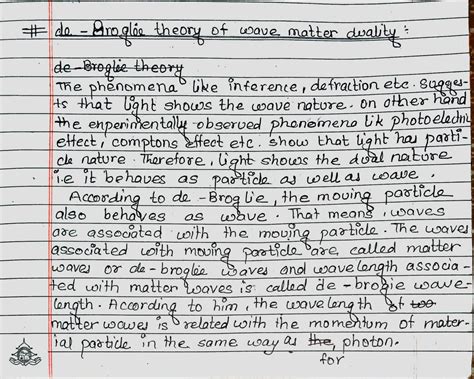 # de-Broglie theory of wave matter duality :
de-Broglie theory
The phenomena like inference, defraction etc. Sugges-
ts that light shows the wave nature. On other hand
the enperimentally observed phenomena lik photoelectric
effect, comptons effect etc. show that light has parti-
cle nature. Therefore, light shows the dual nature
i.e it behaves as particle as well as wave.
According to de-Broglie, the moving particle
also behaves as wave. That means, waves
are associated with the moving particle. The waves
associated with moving particle are, called matter
waves or de-broglie waves and wavelength associa-
ted with matter waves is called de-brogie wave-
length. According to him, the wavelength of too
matter wowes is related with the momentum of mater-
ial particle in the same way as the, photon.
for